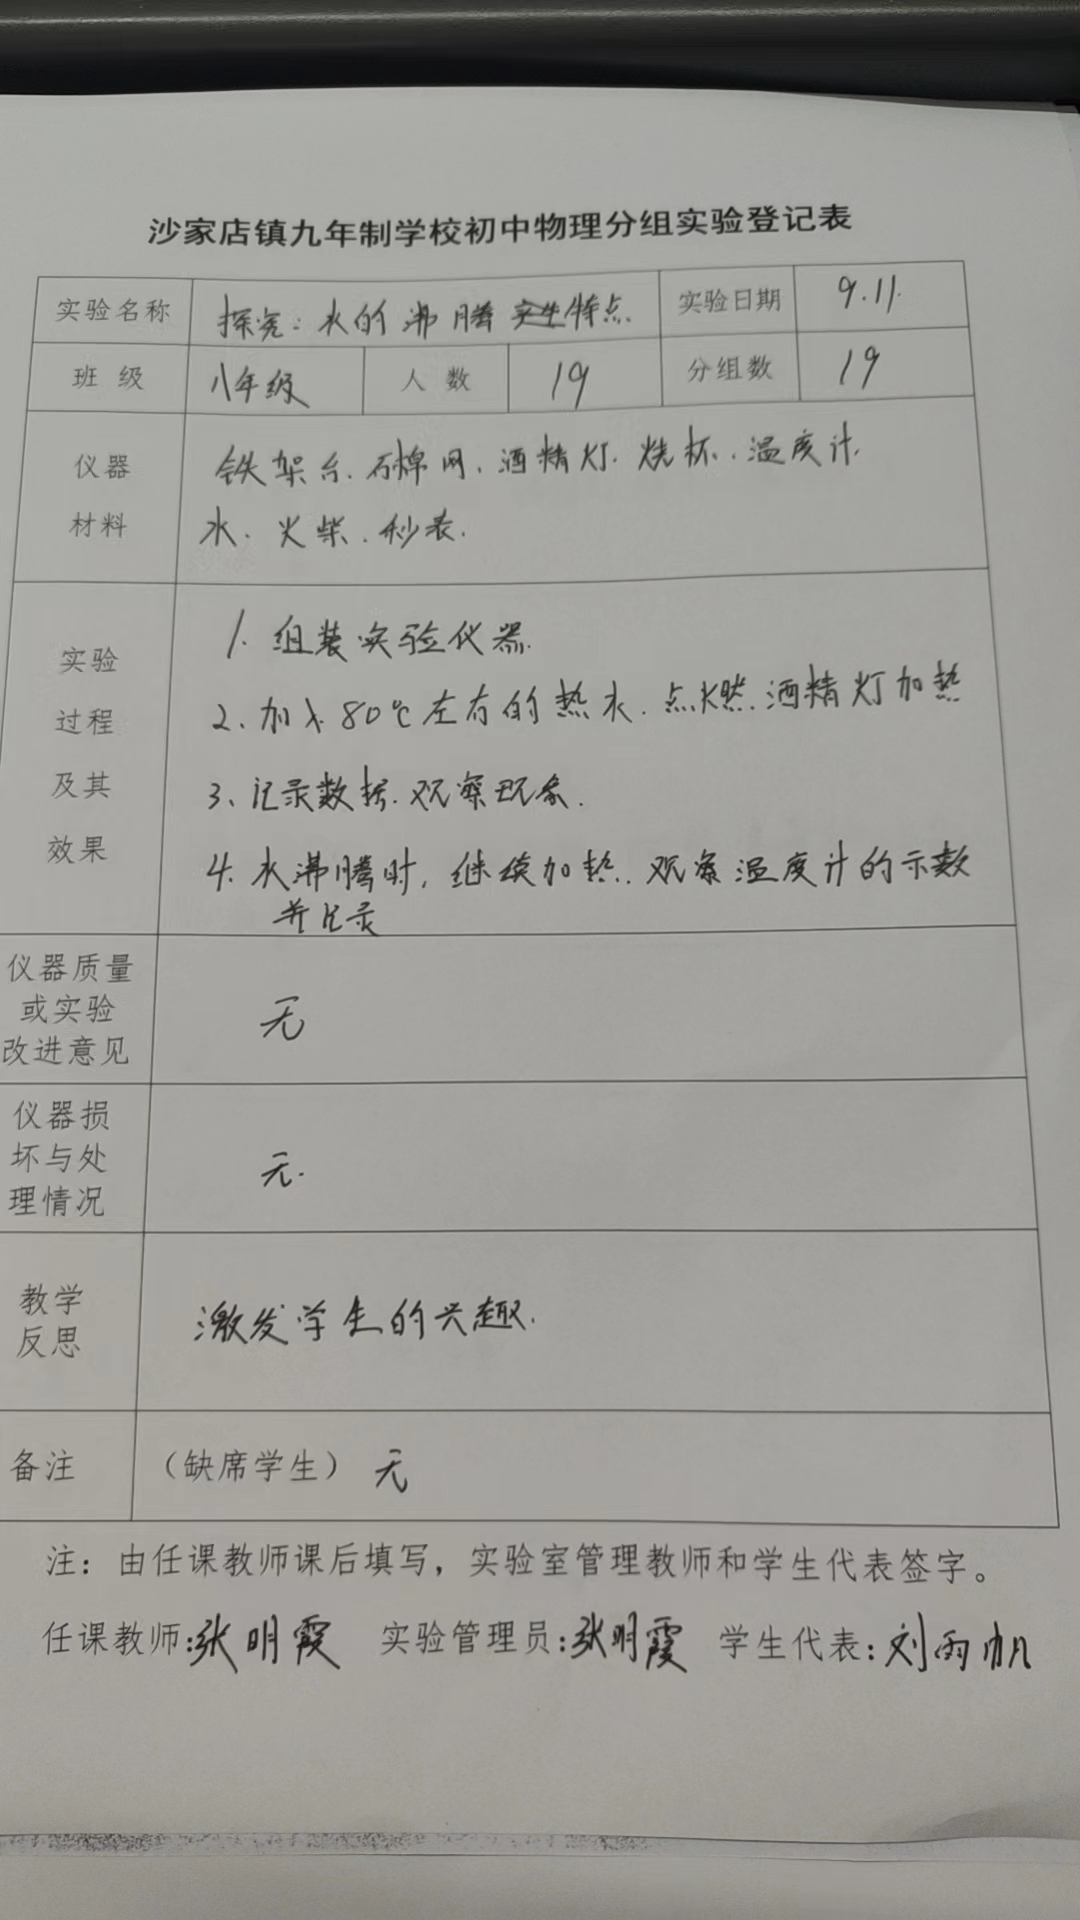 沙家店镇九年制学校初中物理分组实验登记表
实验名称 探究:水的沸腾特点 实验日期 9.11.
班 级 八年级 人 数 19 分组数 19
仪器
材料
铁架台、石棉网、酒精灯、烧杯、温度计
水、火柴、秒表.
实验
过程
及其
效果
1. 组装实验仪器.
2、加入80℃左右的热水.点燃酒精灯加热
3、记录数据.观察现象.
4. 水沸腾时,继续加热.观察温度计的示数
并记录
仪器质量
或实验
改进意见
无
仪器损
坏与处
理情况
无.
教学
反思
激发学生的兴趣.
备注 (缺席学生) 无
注:由任课教师课后填写,实验室管理教师和学生代表签字。
任课教师:张明霞 实验管理员:张明霞 学生代表:刘雨帆